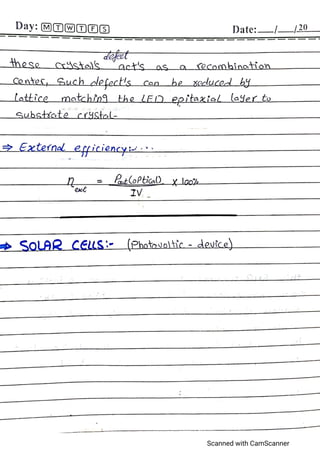 Day: M T W T F S
Date: __/__/20
defect
these crystals act's as a recombination
center, Such defect's can be reduced by
lattice matching the LED epitaxial layer to
substrate crystal-
⇒ External efficiency:- ...
η ext = Pout (optical) / IV × 100%
⇒ SOLAR CELLS:- (Photovoltic - device)
Scanned with CamScanner